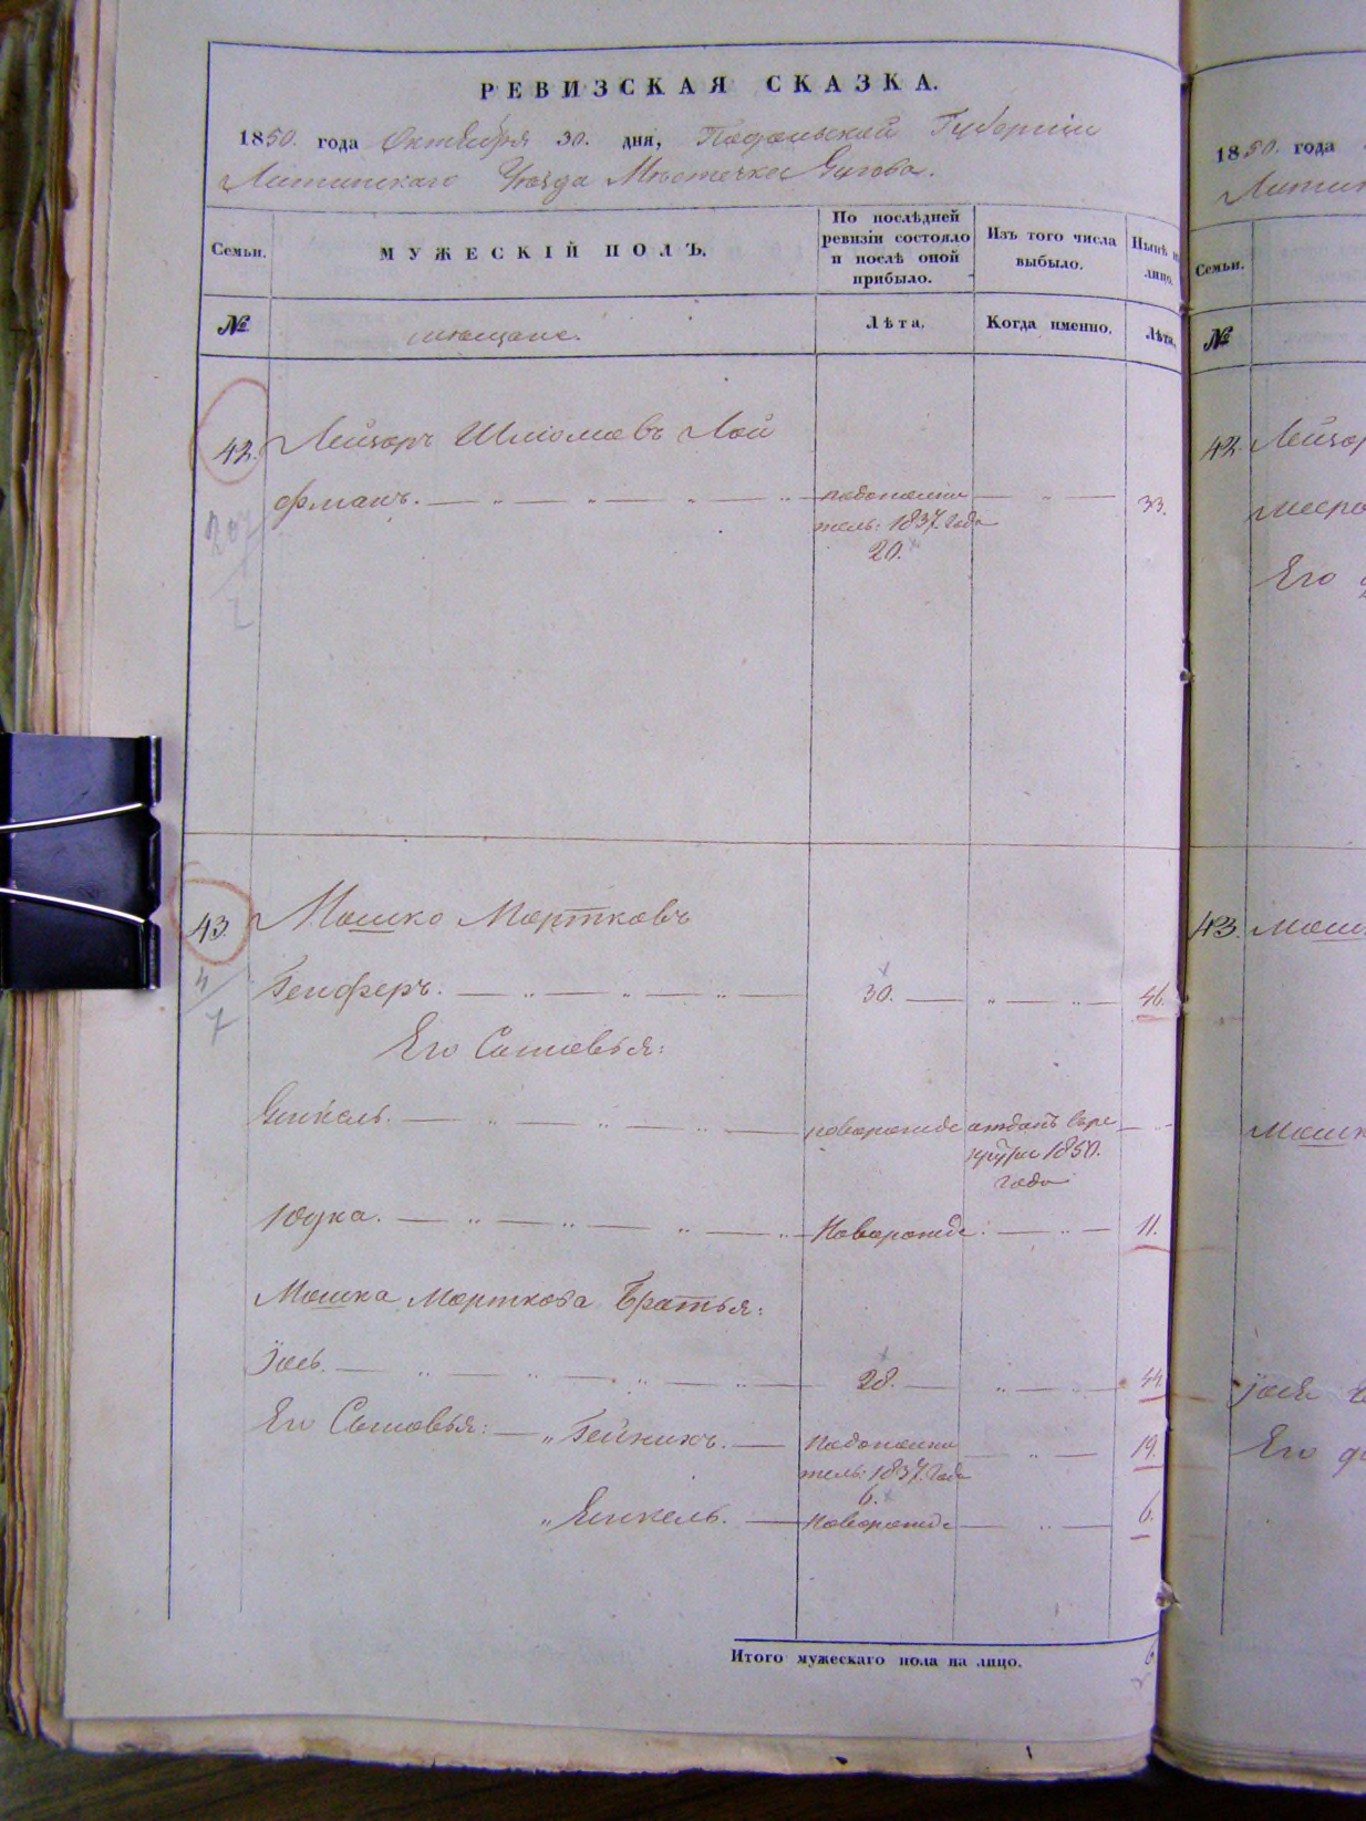 РЕВИЗСКАЯ СКАЗКА.
1850. года Октября 30. дня, Подольской Губернии
Литинскаго Уѣзда Мѣстечка
Семьи.
МУЖЕСКІЙ ПОЛЪ.
По послѣдней ревизіи состояло и послѣ оной прибыло.
Изъ того числа выбыло.
Нынѣ на лицо.
№
мѣщане.
Лѣта.
Когда именно.
Лѣта.
42. Лейзоръ Шліомовъ Лой
фманъ. — „ — „ — „ — „ — дополни — „ — 33.
тель: 1837. года
20.
43. Мошко Мортковъ
Генферъ. — „ — „ — „ — 30. — „ — „ — 46.
Его Сыновья:
Янкель. — „ — „ — „ — новорожде отданъ въ ре — „
круты 1850.
года
Юдка. — „ — „ — „ — „ — Новорожде. — „ — 11.
Мошка Морткова Братья:
Іось. — „ — „ — „ — „ — 28. — „ — „ — 44.
Его Сыновья: — „ — 19.
тель: 1837. года
6.
„ Янкель. — Новорожде — „ — 6.
Итого мужескаго пола на лицо. 6
1850. года
Литин
Семьи.
№
42. Лейзор
Его
43. Мошк
Мошк
Іося
Его